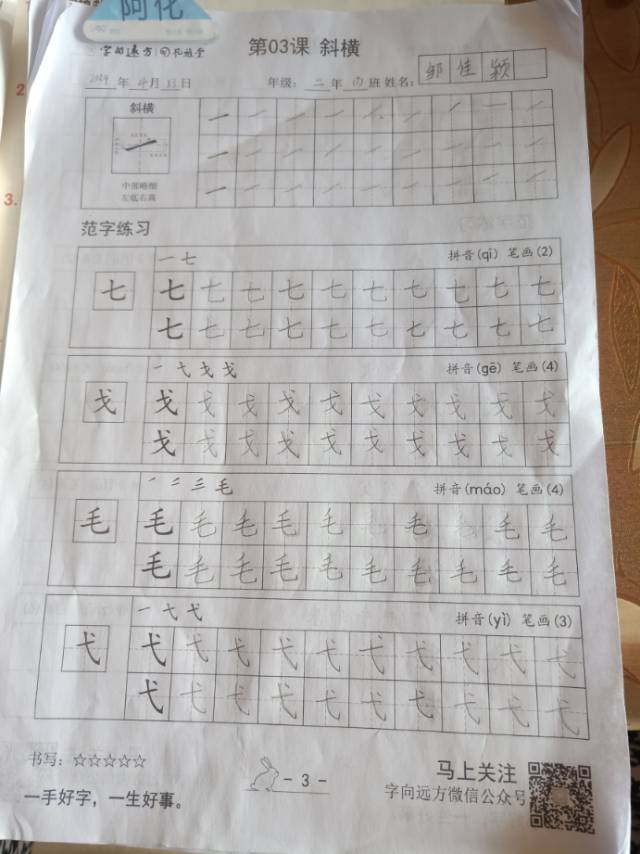 阿花
字向远方
第03课 斜横
2024年4月13日
年级：二年 班 姓名：邹佳颖
斜横
中部略细
左低右高
范字练习
一七
拼音(qī) 笔画(2)
七 七 七 七 七 七 七 七 七 七 七
七 七 七 七 七 七 七 七 七 七
一 弋 戈 戈
拼音(gē) 笔画(4)
戈 戈 戈 戈 戈 戈 戈 戈 戈 戈 戈
戈 戈 戈 戈 戈 戈 戈 戈 戈 戈
毛
拼音(máo) 笔画(4)
毛 毛 毛 毛 毛 毛 毛 毛 毛 毛 毛
毛 毛 毛 毛 毛 毛 毛 毛 毛 毛
一 弋 弋
拼音(yì) 笔画(3)
弋 弋 弋 弋 弋 弋 弋 弋 弋 弋 弋
弋 弋 弋 弋 弋 弋 弋 弋 弋 弋
书写：☆☆☆☆☆
一手好字，一生好事。
- 3 -
马上关注
字向远方微信公众号